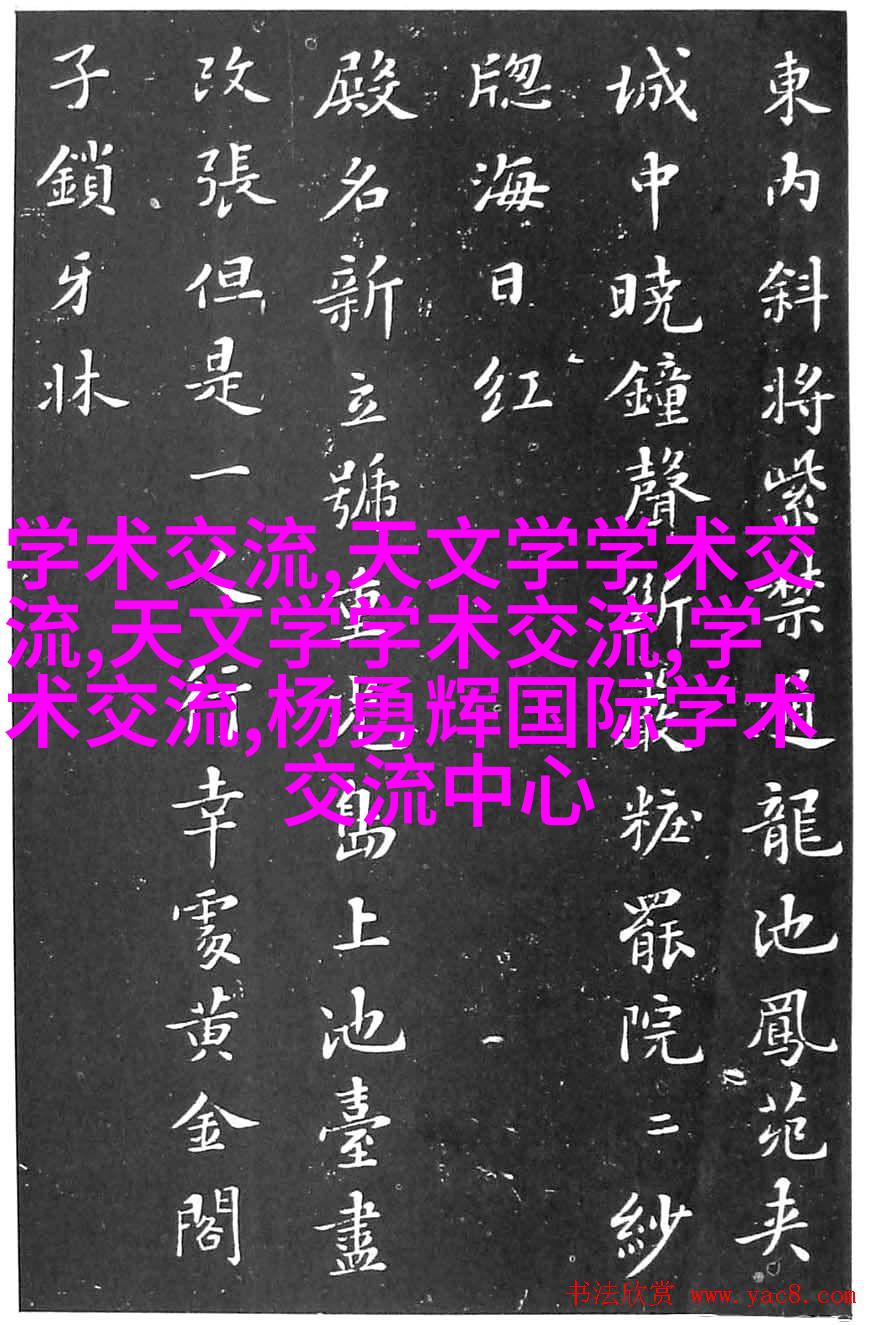 東内斜将紫禁通龍池鳳苑夾
城中曉鐘聲斷嚴粧罷院二紗
牕海日红
殿名新立號重光島上池臺盡
改張但是一人行幸處黄金閣
子鎖牙牀
学术交流,天文学学术交
流,天文学学术交流,学
术交流,杨勇辉国际学术
交流中心
书法欣赏 www.yac8.com